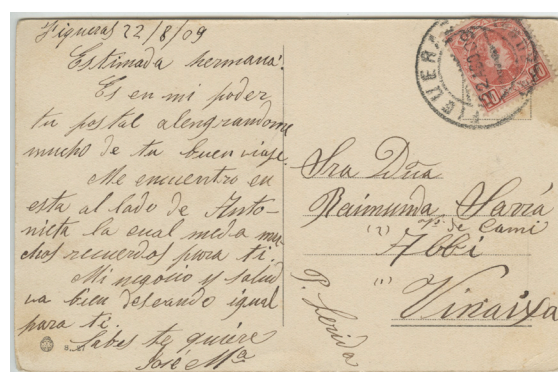 Figueras 22/8/09
Estimada hermana:
Es en mi poder
tu postal alengrandome
mucho de tu buen viaje.
Me encuentro en
esta al lado de Anto-
nieta la cual meda mu-
chos recuerdos para ti.
Mi negocio y salud
va bien deseando igual
para ti.
Sabes te quiere
José Mª
Sra Dña
Raimunda Sarrá
de Camí
(2) Albi
(1) Vinaixa
P. Lerida
FIGUERAS